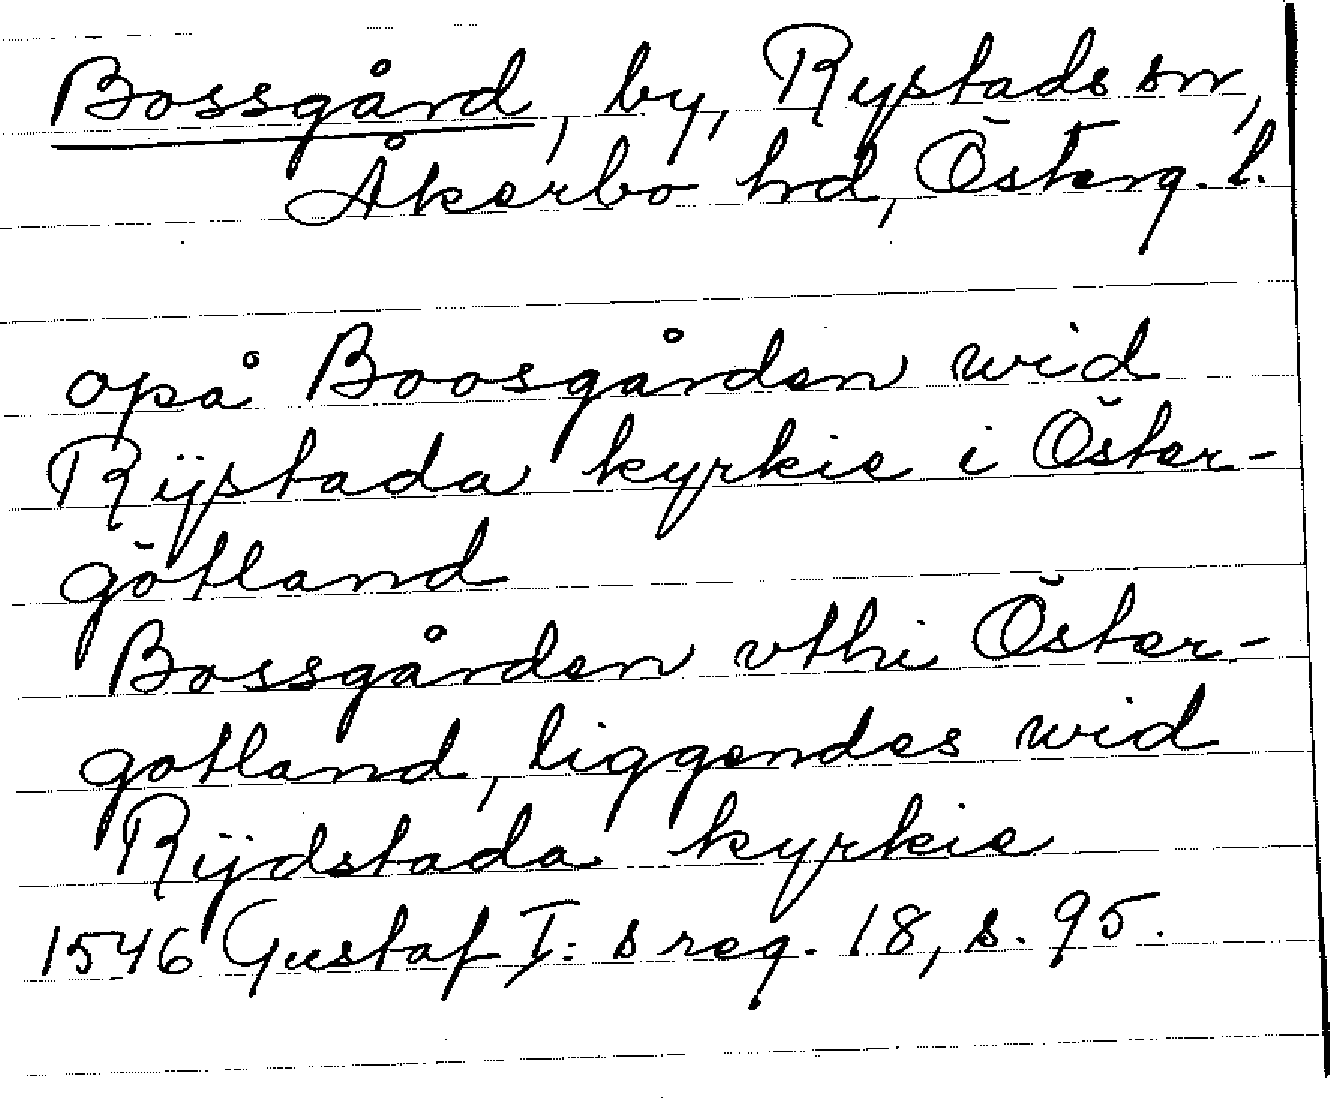 Bossgård, by, Rystads sn,
Åkerbo hd, Österg. l.
opå Boosgården wid
Rÿstada kyrkie i Öster-
götland
Bossgården vthi Öster-
gotland, liggendes wid
Rÿdstada kyrkie
1546 Gustaf I:s reg. 18, s. 95.